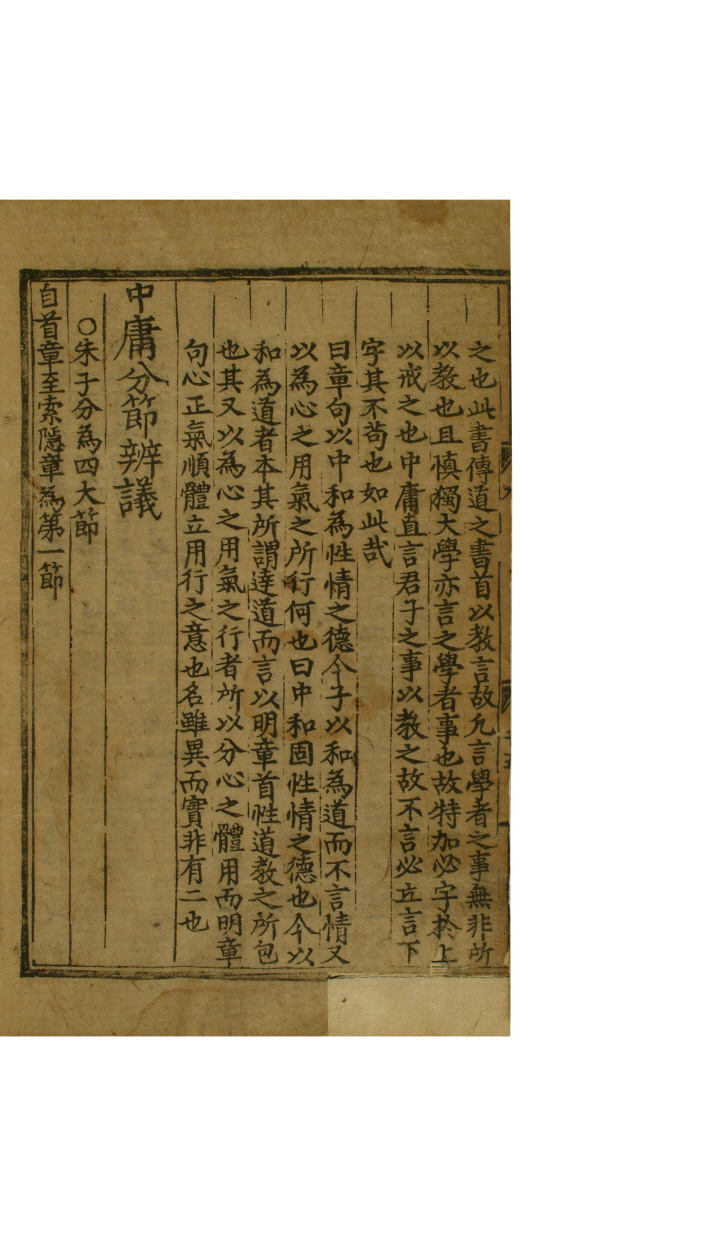 之也此書傳道之書首以教言故凡言學者之事無非所
以教也且愼獨大學亦言之學者事也故特加必字於上
以戒之也中庸直言君子之事以教之故不言必立言下
字其不苟也如此哉
曰章句以中和爲性情之德今子以和爲道而不言情又
以爲心之用氣之所行何也曰中和固性情之德也今以
和爲道者本其所謂達道而言以明章首性道教之所包
也其又以爲心之用氣之行者所以分心之體用而明章
句心正氣順體立用行之意也名雖異而實非有二也
中庸分節辨議
○朱子分爲四大節
自首章至索隱章爲第一節